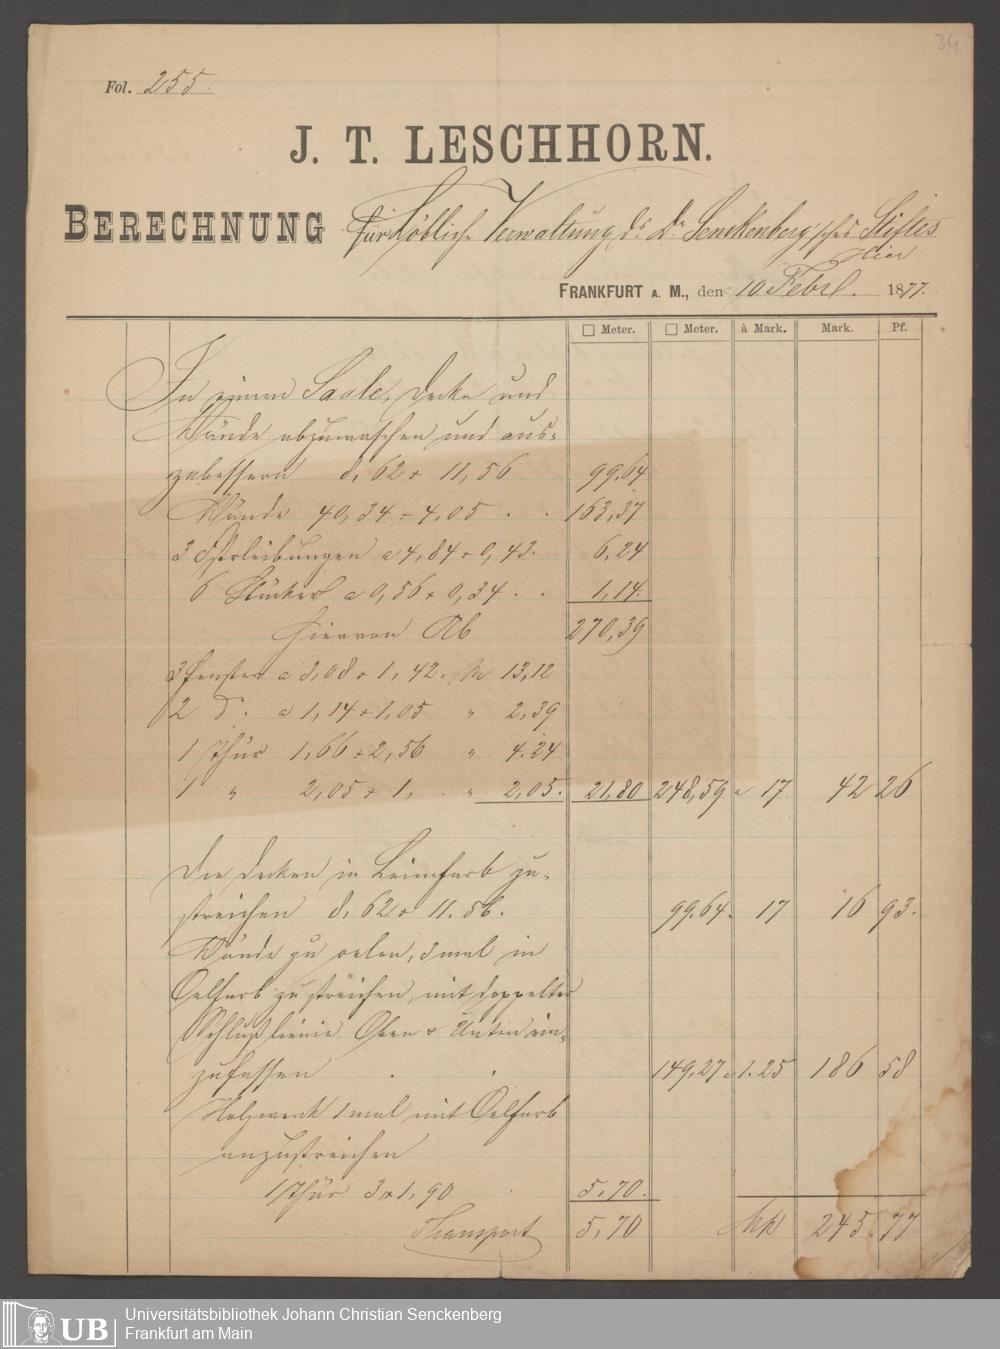 34
Fol. 255.
J. T. LESCHHORN.
BERECHNUNG für Löbliche Verwaltung ds Dr Senckenberg'sches Stiftes
Hier
FRANKFURT A. M., den 10 Febrl. 1877.
□ Meter. □ Meter. à Mark. Mark. Pf.
In einem Saale, Decke und
Wände abzuwaschen und aus-
zubessern 8,62 × 11,56 99,64
Wände 40,34 × 4,05 163,37
3 a 4,84 × 0,43. 6,24
6 Stücker a 0,56 × 0,34 1,14.
Hiervon Ab 270,39
3 Fenster a 3,08 × 1,42. M 13,12
2 do. a 1,14 × 1,05 " 2,39
1 Thür 1,66 × 2,56 " 4.24
1 " 2,05 × 1, " 2,05. 21,80 248,59 a 17 42 26
Die Decken in Leimfarb zu-
streichen 8,62 × 11.56. 99,64. 17 16 93.
Wände zu oelen, 3 mal in
Oelfarb zu streichen, mit doppelter
Schlußlienie Oben & Unten ein-
zufassen 149,27 a 1.25 186 58
Holzwerk 1 mal mit Oelfarb
anzustreichen
1 Thür 3 × 1,90 5,70.
Transport 5,70 Mk 245.77
UB
Universitätsbibliothek Johann Christian Senckenberg
Frankfurt am Main